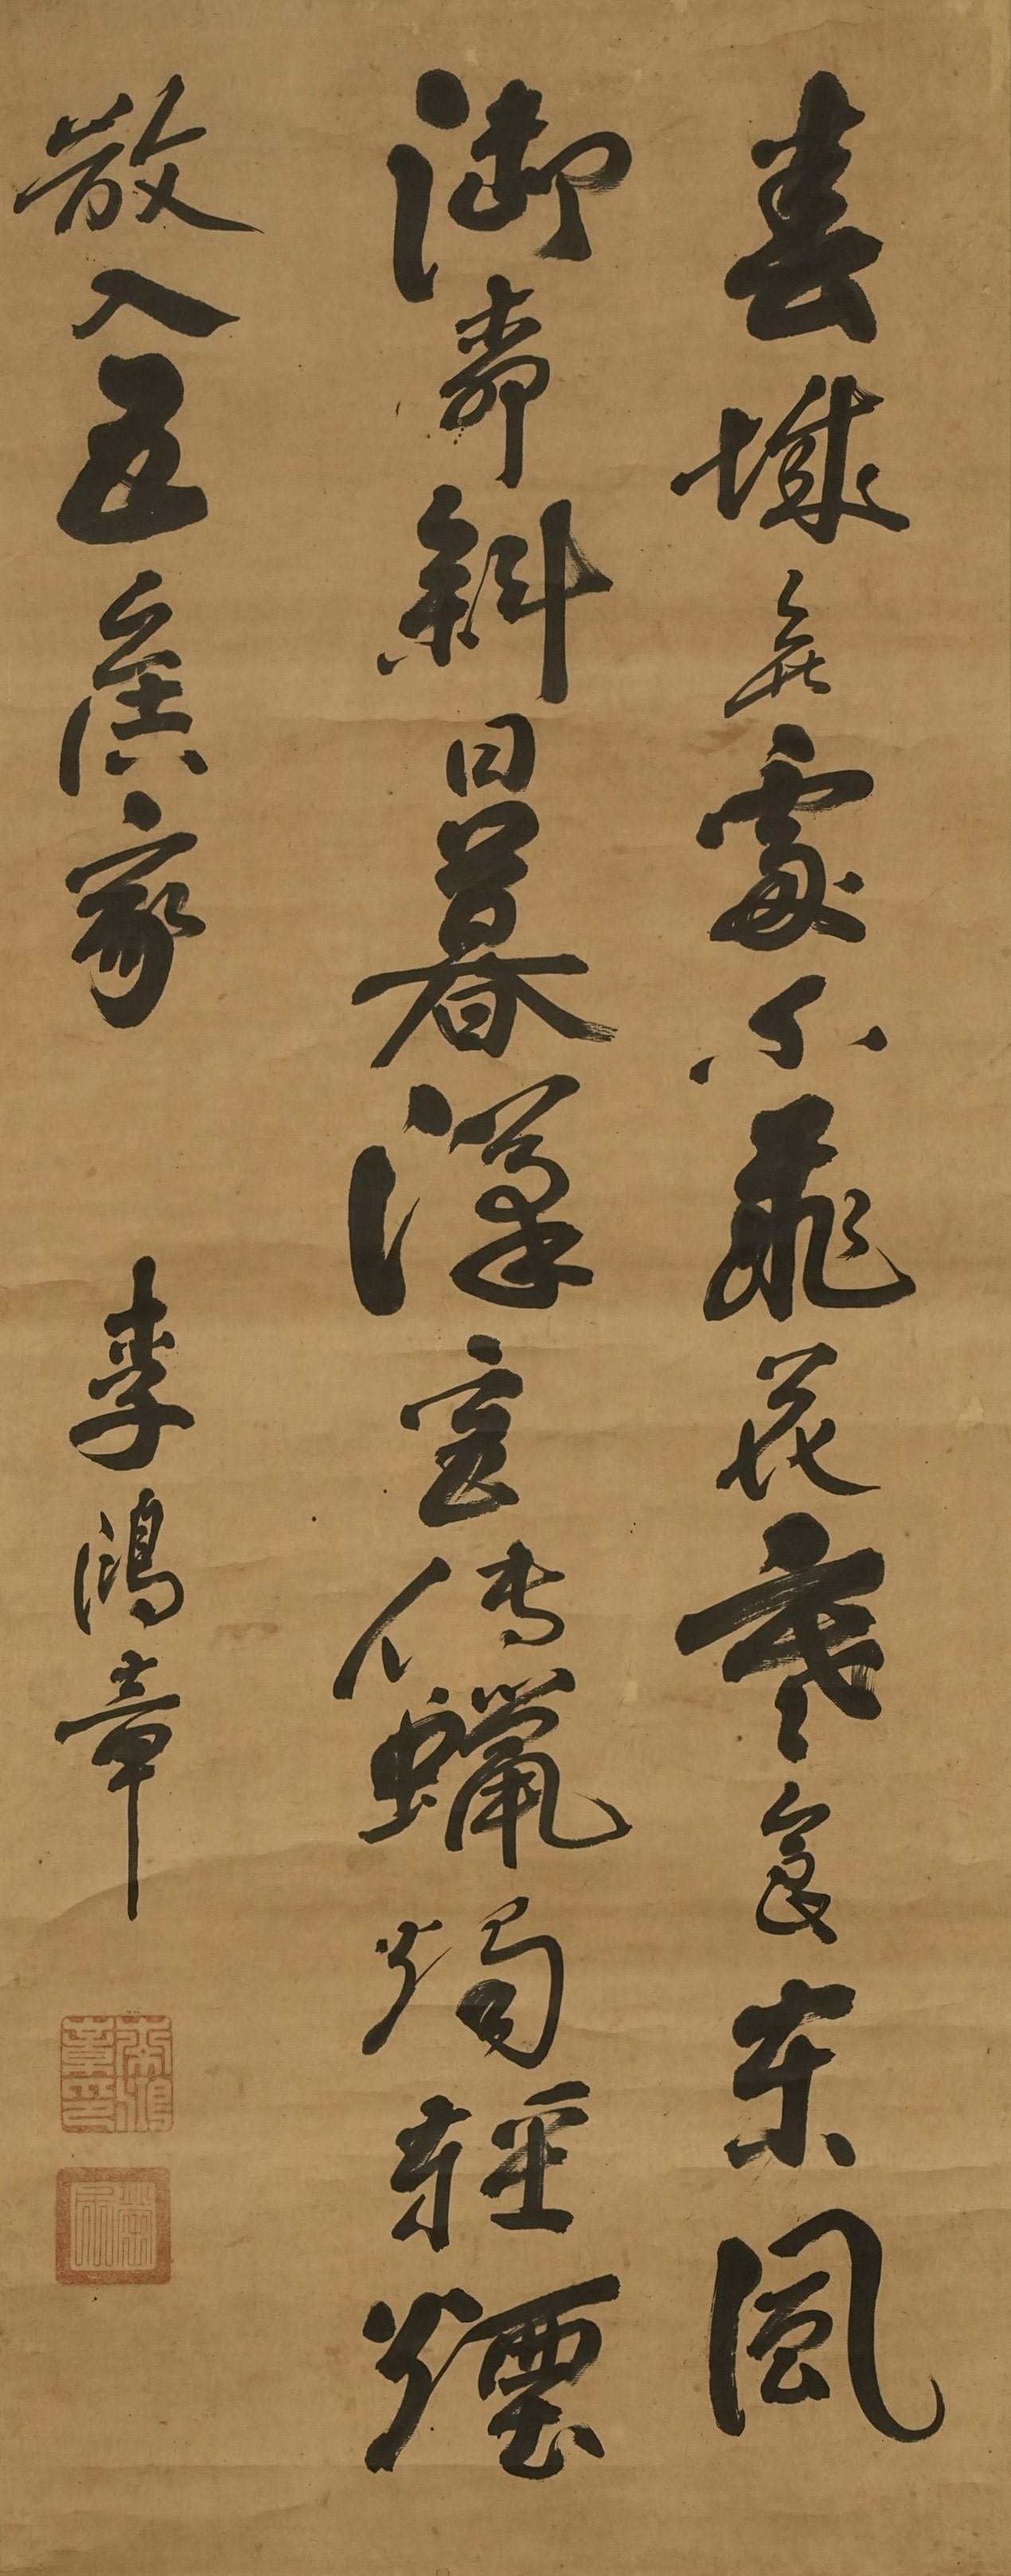 春城無處不飛花寒食東風
御柳斜日暮漢宮傳蠟燭輕煙
散入五侯家
李鴻章
李鴻章印